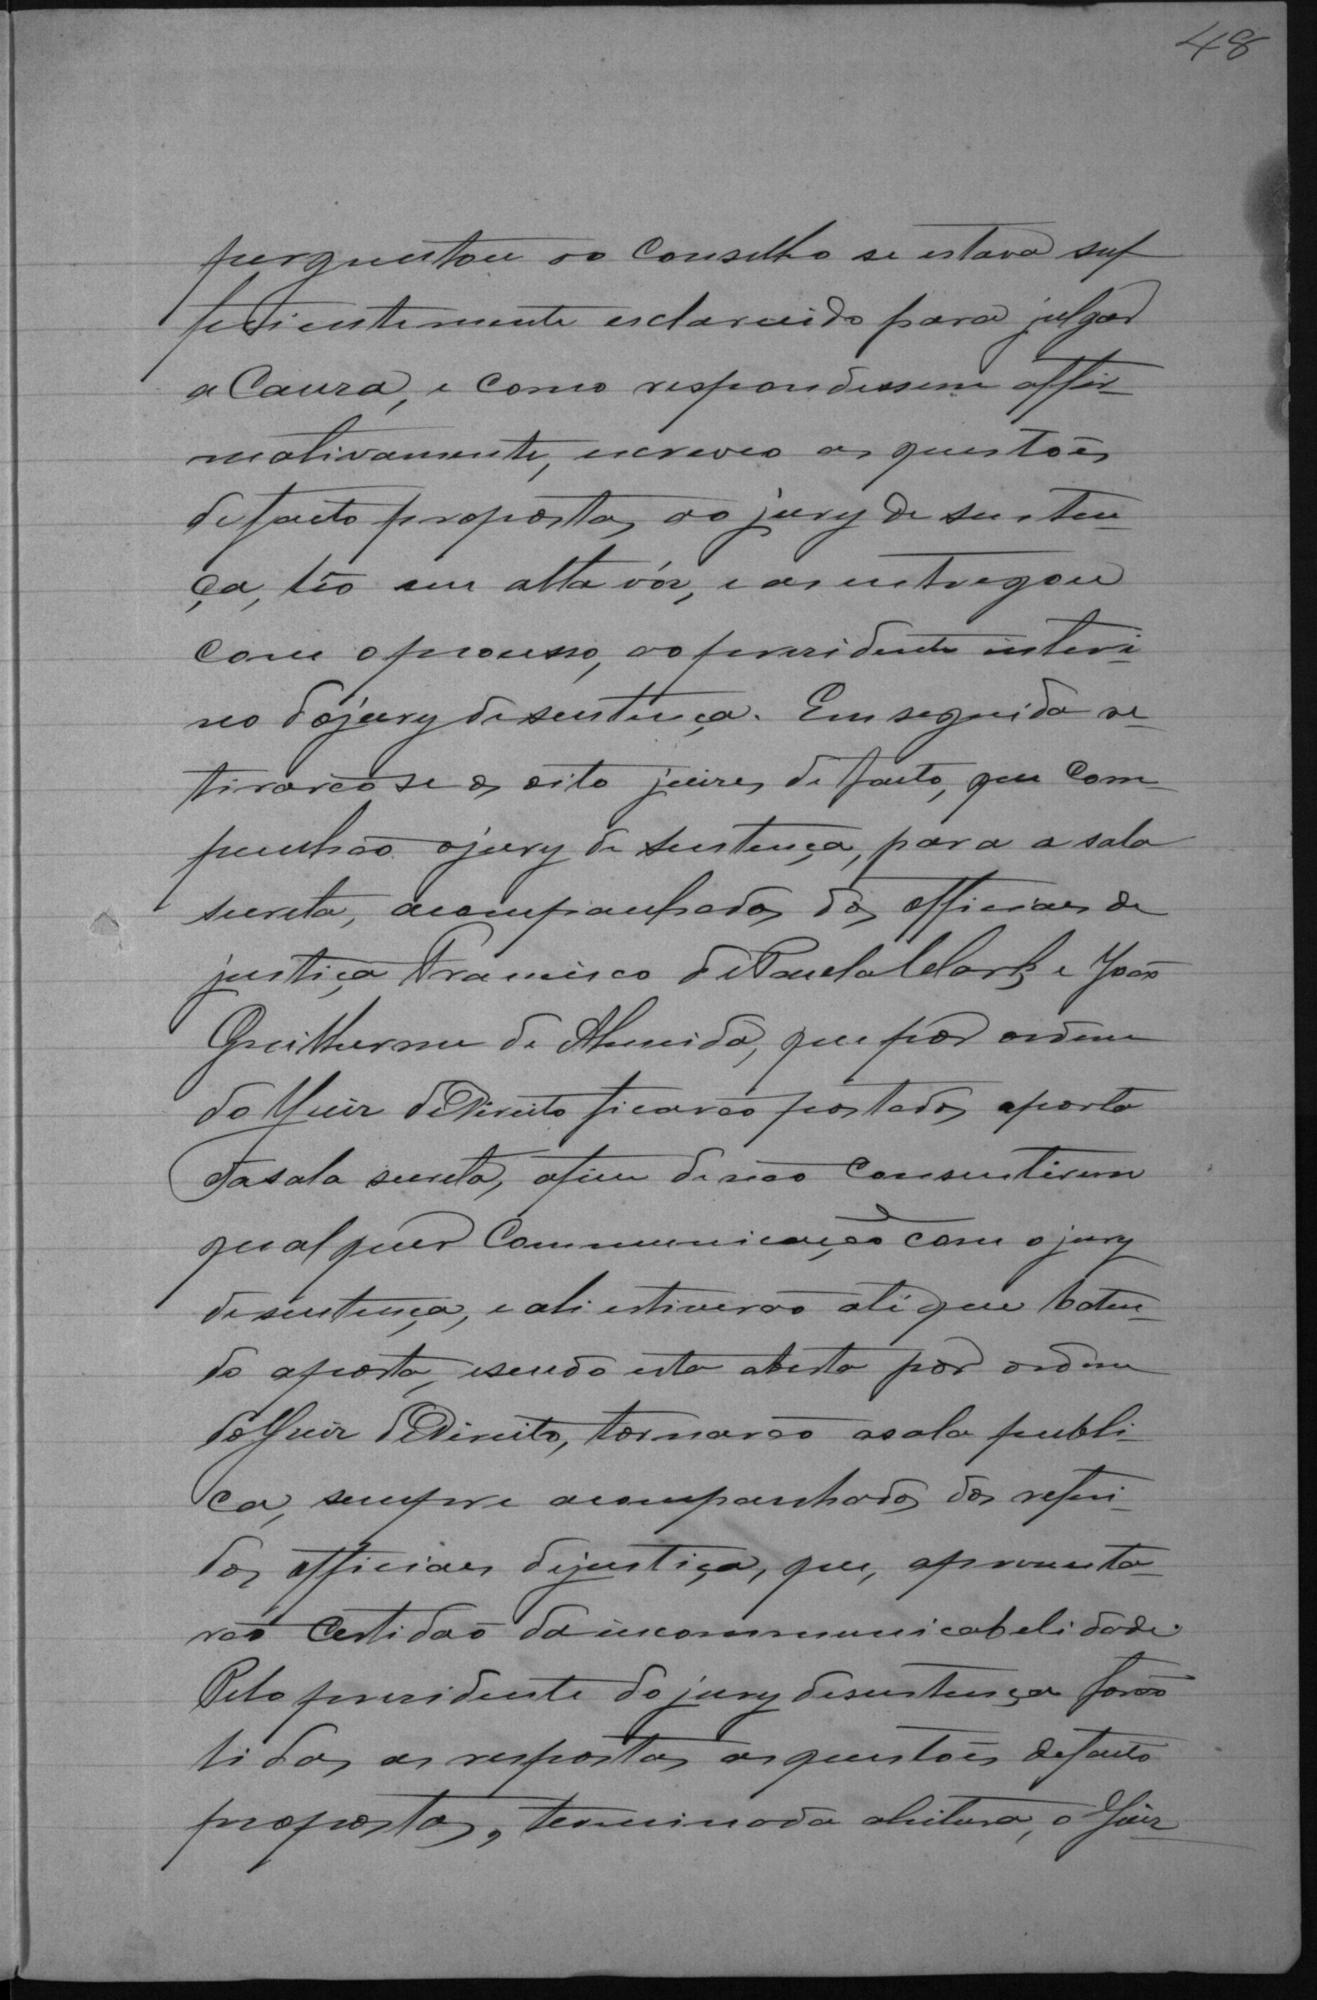 48
perguntou ao Conselho se estava suf
ficientemente esclarecido para julgar
a Causa, e como respondessem affir-
mativamente, escreveo as questões
de facto propostas ao jury de senten-
ça, leo em alta vóz, e as entregou
com o processo, ao presidente interi-
no do jury de sentença. Em seguida re-
tirarão se os oito juizes de facto, que com-
punhão o jury de sentença, para a sala
secreta, acompanhados dos officiaes de
justiça Francisco de Paula Clark e João
Guilherme de Almeida, que por ordem
do Juiz de Direito ficarão postados a porta
da sala secreta, afim de não consentirem
qualquer Communicação com o jury
de sentença, e ali estiverão até que baten-
do a porta, e sendo esta aberta por ordem
do Juiz de Direito, tornarão a sala publi-
ca, sempre acompanhados dos referi-
dos officiaes de justiça, que, apresenta-
rão Certidão da incommunicabelidade.
Pelo presidente do jury de sentença forão
lidas as respostas as questões de facto
propostas, terminada a leitura, o Juiz